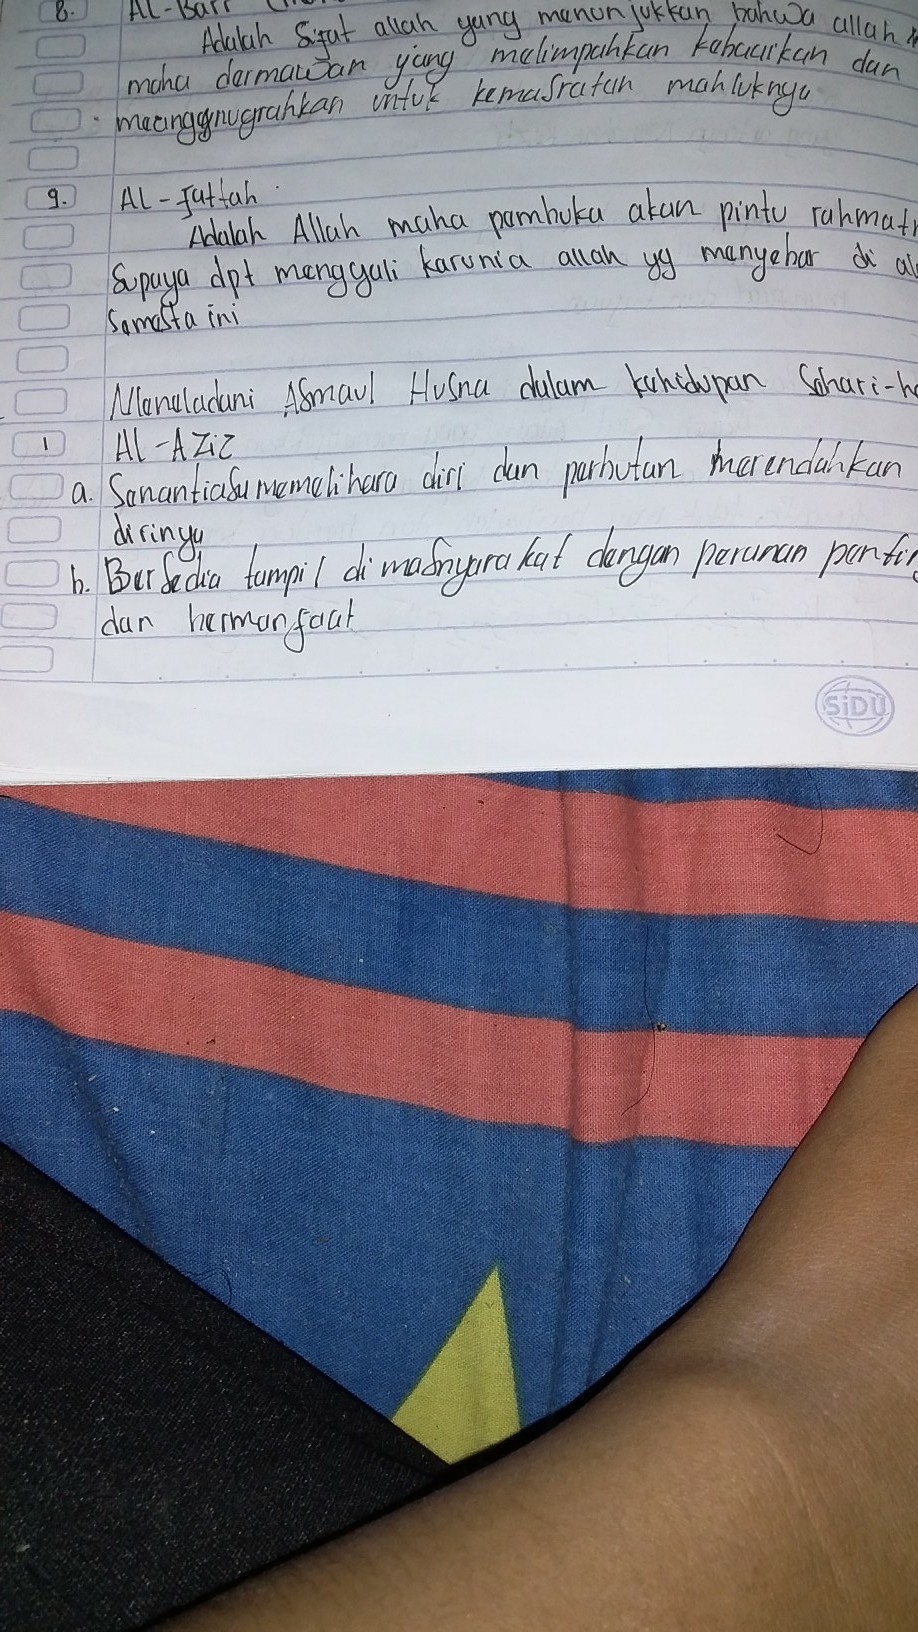 8. AL-Barr
Adalah Sifat allah yang menunjukkan bahwa allah
maha dermawan yang melimpahkan kebaikan dan
meanggnugrahkan untuk kemasratan mahluknya
9. AL-fattah
Adalah Allah maha pembuka akan pintu rahmat
Supaya dpt menggali karunia allah yg menyebar di
Samesta ini
Meneladani Asmaul Husna dalam kehidupan Sehari-
1 Al-AZiz
a. Senantiasa memelihara diri dan perbutan merendahkan
dirinya
b. Bersedia tampil di masnyarakat dengan peranan
dan bermanfaat
SiDU